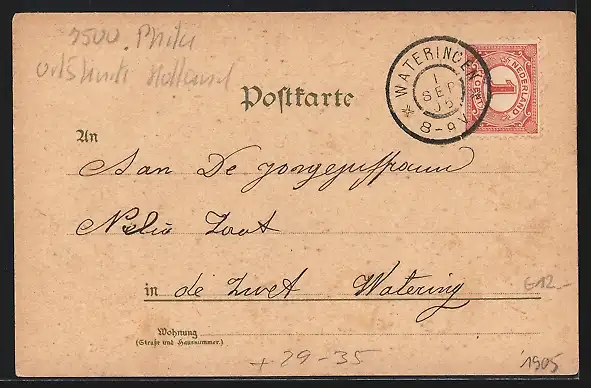 3500 Phila
Ortskunde Holland
WATERINGEN
1
SEP
05
8-9V
NEDERLAND
1
CENT
Postkarte
An
Aan De jongejuffrouw
Nelia Zoot
in de Zwet Watering
G12.-
Wohnung
(Straße und Hausnummer.)
+29-35
1905